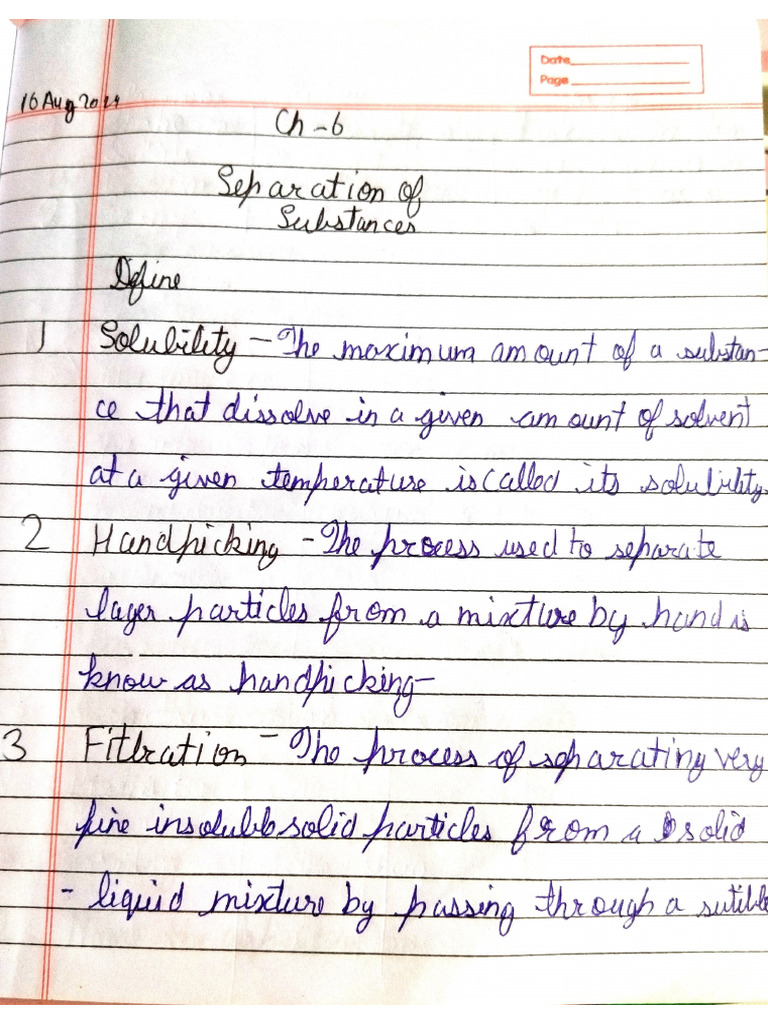 Date
Page
16 Aug 2024
Ch - 6
Separation of
Substances
Define
1 Solubility - The maximum amount of a substan-
ce that dissolve in a given amount of solvent
at a given temperature is called its solubility.
2 Handpicking - The process used to separate
lager particles from a mixture by hand is
know as handpicking-
3 Fitlration - The process of separating very
fine insoluble solid particles from a solid
- liquid mixture by passing through a sutible